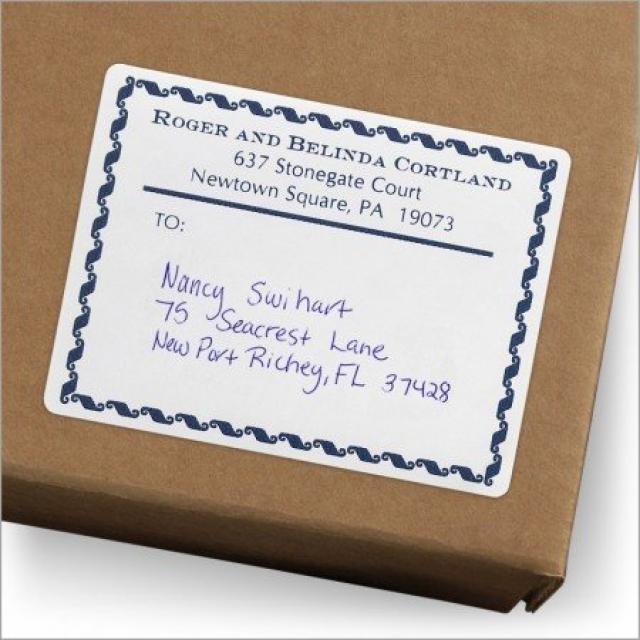 ROGER AND BELINDA CORTLAND
637 Stonegate Court
Newtown Square, PA 19073
TO:
Nancy Swihart
75 Seacrest Lane
New Port Richey, FL 37428